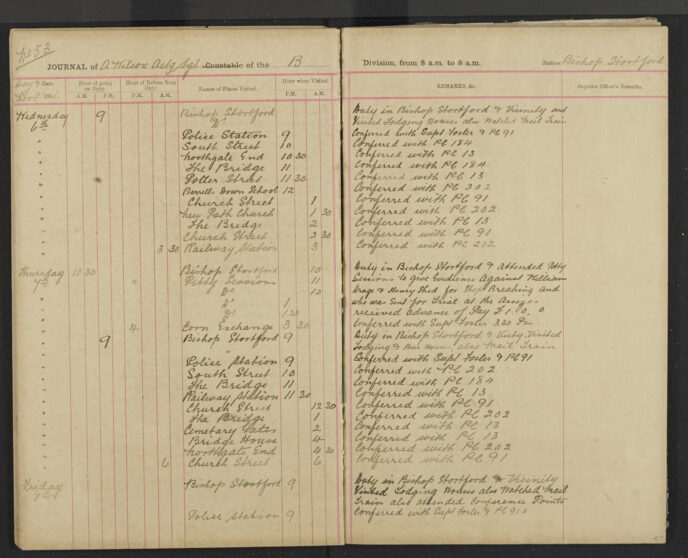 No 53
JOURNAL of A Wilcox Actg Sgt Constable of the B
Day & Date. Hour of going on Duty. Hour of Return from Duty. Names of Places Visited. Hour when Visited.
1911 A.M. P.M. P.M. A.M. P.M. A.M.
Wednesday 9 Bishop Stortford
6th Do
Police Station 9
South Street 10
Northgate End 10 30
The Bridge 11
Potter Street 11 30
Barretts Down School 12
Church Street 1
New Path Church 1 30
The Bridge 2
Church Street 2 30
3 30 Railway Station 3
Thursday 10 30 Bishop Stortford 10
7th Petty Sessions 11
Do 12
Do 1
Do 1 30
4 Corn Exchange 3 30
9 Bishop Stortford 9
Police Station 9
South Street 10
The Bridge 11
Railway Station 11 30
Church Street 12 30
The Bridge 1
Cemetary Gates 2
Bridge House 4
Northgate End 4 30
6 Church Street 6
Friday Bishop Stortford 9
Police Station 9
Division, from 8 a.m. to 8 a.m. Station Bishop Stortford
REMARKS, &c. Superior Officer's Remarks.
Duty in Bishop Stortford & Vicinity and
Visited Lodging Houses also Watched Mail Train
Conferred with Supt Foster & PC 91
Conferred with PC 184
Conferred with PC 13
Conferred with PC 184
Conferred with PC 13
Conferred with PC 202
Conferred with PC 91
Conferred with PC 202
Conferred with PC 13
Conferred with PC 91
Conferred with PC 202
Duty in Bishop Stortford & Attended Petty
Sessions to give Evidience Against William
Drage & Henry Shed for Shop Breaking and
who was Sent for Trial at the Assizes
received advance of Pay £1. 0. 0
Conferred with Supt Foster 3.30 Pm
Duty in Bishop Stortford & Visited
Lodging & Houses also Mail Train
Conferred with Supt Foster & PC 91
Conferred with PC 202
Conferred with PC 184
Conferred with PC 13
Conferred with PC 91
Conferred with PC 202
Conferred with PC 13
Conferred with PC 13
Conferred with PC 202
Conferred with PC 91
Duty in Bishop Stortford & Vicinity
Visited Lodging Houses also Watched Mail
Train also attended Conference Points
Conferred with Supt Foster & PC 91